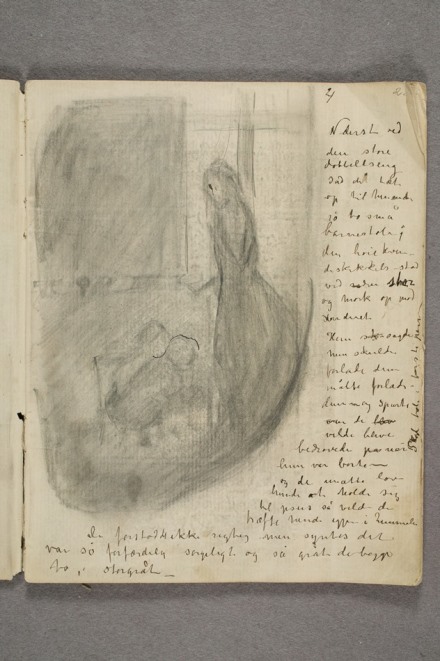 2)
Nederst ved
den store
dobbeltseng
sad det tæt
op til hverandre
på to små
barnestole;
den høie kvin-
deskikkelse stod
ved siden stor
og mørk op mod
vinduet
Hun sagde
hun skulde
forlade dem
måtte forlade
dem og spurte
om de
vilde blive
bedrøvede når
hun var borte
og de måtte love
hende at holde sig
til Jesus så vilde de
træffe hende igjen i himmelen
De forstod ikke rigtig men syntes det
var så forfærdelig sørgeligt og så gråt de begge
to, storgråt